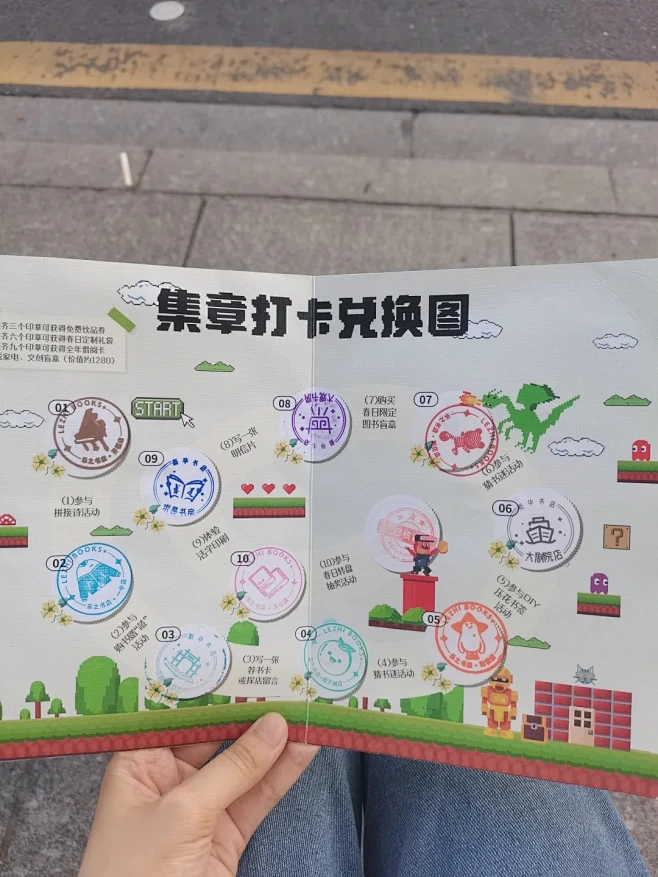 集章打卡兑换图
齐三个印章可获得免费饮品券
齐六个印章可获得春日定制礼袋
齐九个印章可获得全年借阅卡
家电、文创盲盒（价值约1280）
01
LEZHI BOOKS
START
(1)参与
拼接诗活动
02
LEZHI BOOKS
(2)参与
购书赠“读”
活动
03
新华书店
(3)写一张
荐书卡
或探店留言
04
LEZHI BOOKS
(4)参与
猜书迷活动
05
LEZHI BOOKS
(5)参与DIY
压花书签
活动
06
新华书店
大剧院店
(6)参与
猜书迷活动
07
LEZHI BOOKS
(7)购买
春日限定
图书盲盒
08
新华书店
(8)写一张
明信片
09
新华书店
(9)体验
活字印刷
10
LEZHI BOOKS
(10)参与
春日转盘
抽奖活动
?